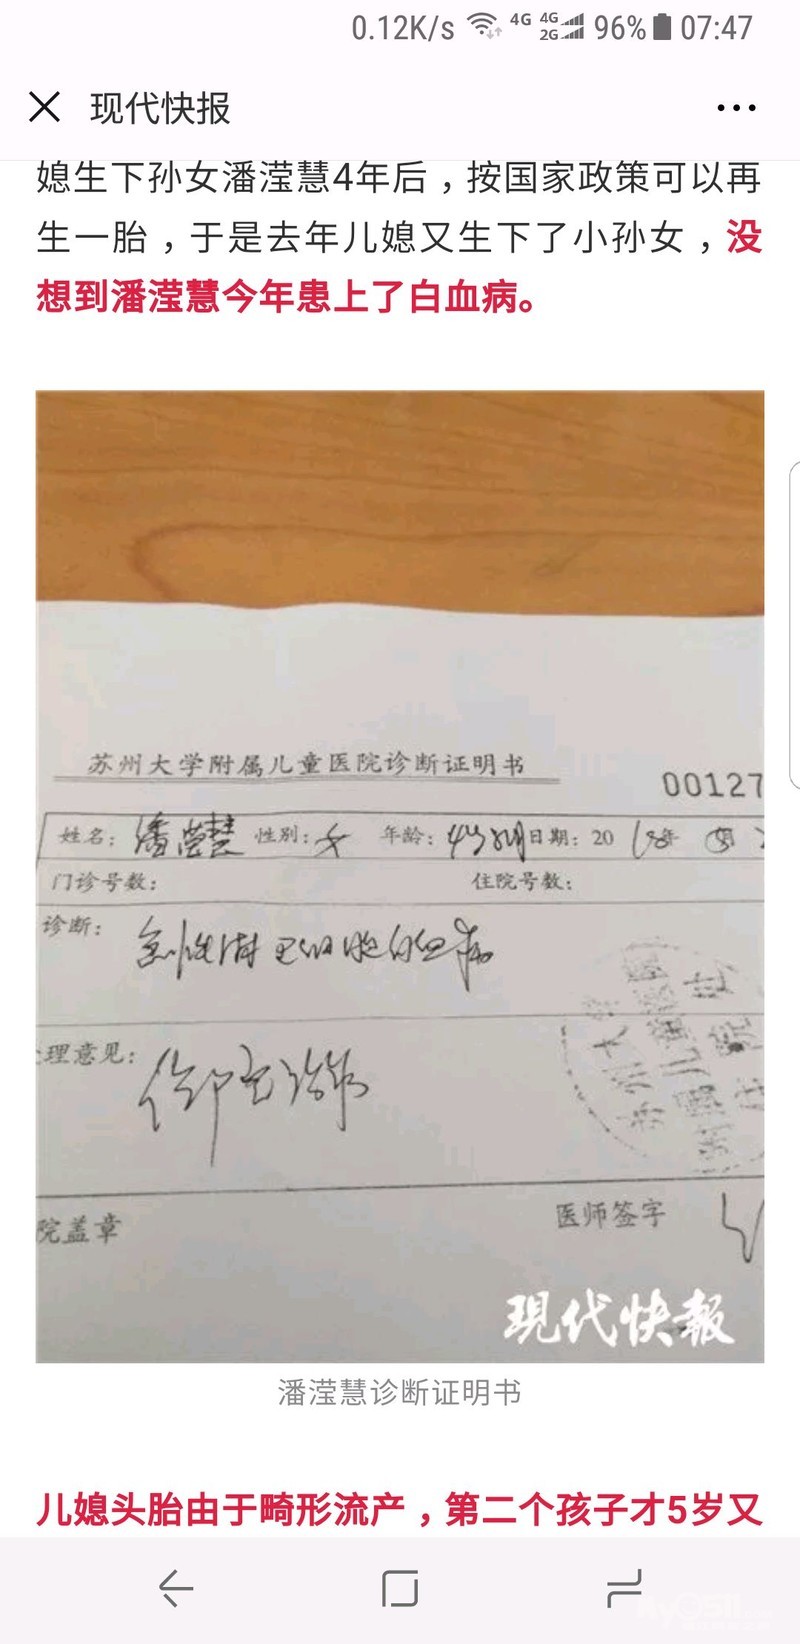 0.12K/s 4G 4G 2G 96% 07:47
现代快报
媳生下孙女潘滢慧4年后，按国家政策可以再
生一胎，于是去年儿媳又生下了小孙女，没
想到潘滢慧今年患上了白血病。
苏州大学附属儿童医院诊断证明书
00127
姓名：潘滢慧 性别：女 年龄：4岁8月 日期：2018年
门诊号数： 住院号数：
诊断：急性淋巴细胞白血病
理意见：
苏州大学
附属儿童医院
住院处
院盖章 医师签字
现代快報
潘滢慧诊断证明书
儿媳头胎由于畸形流产，第二个孩子才5岁又